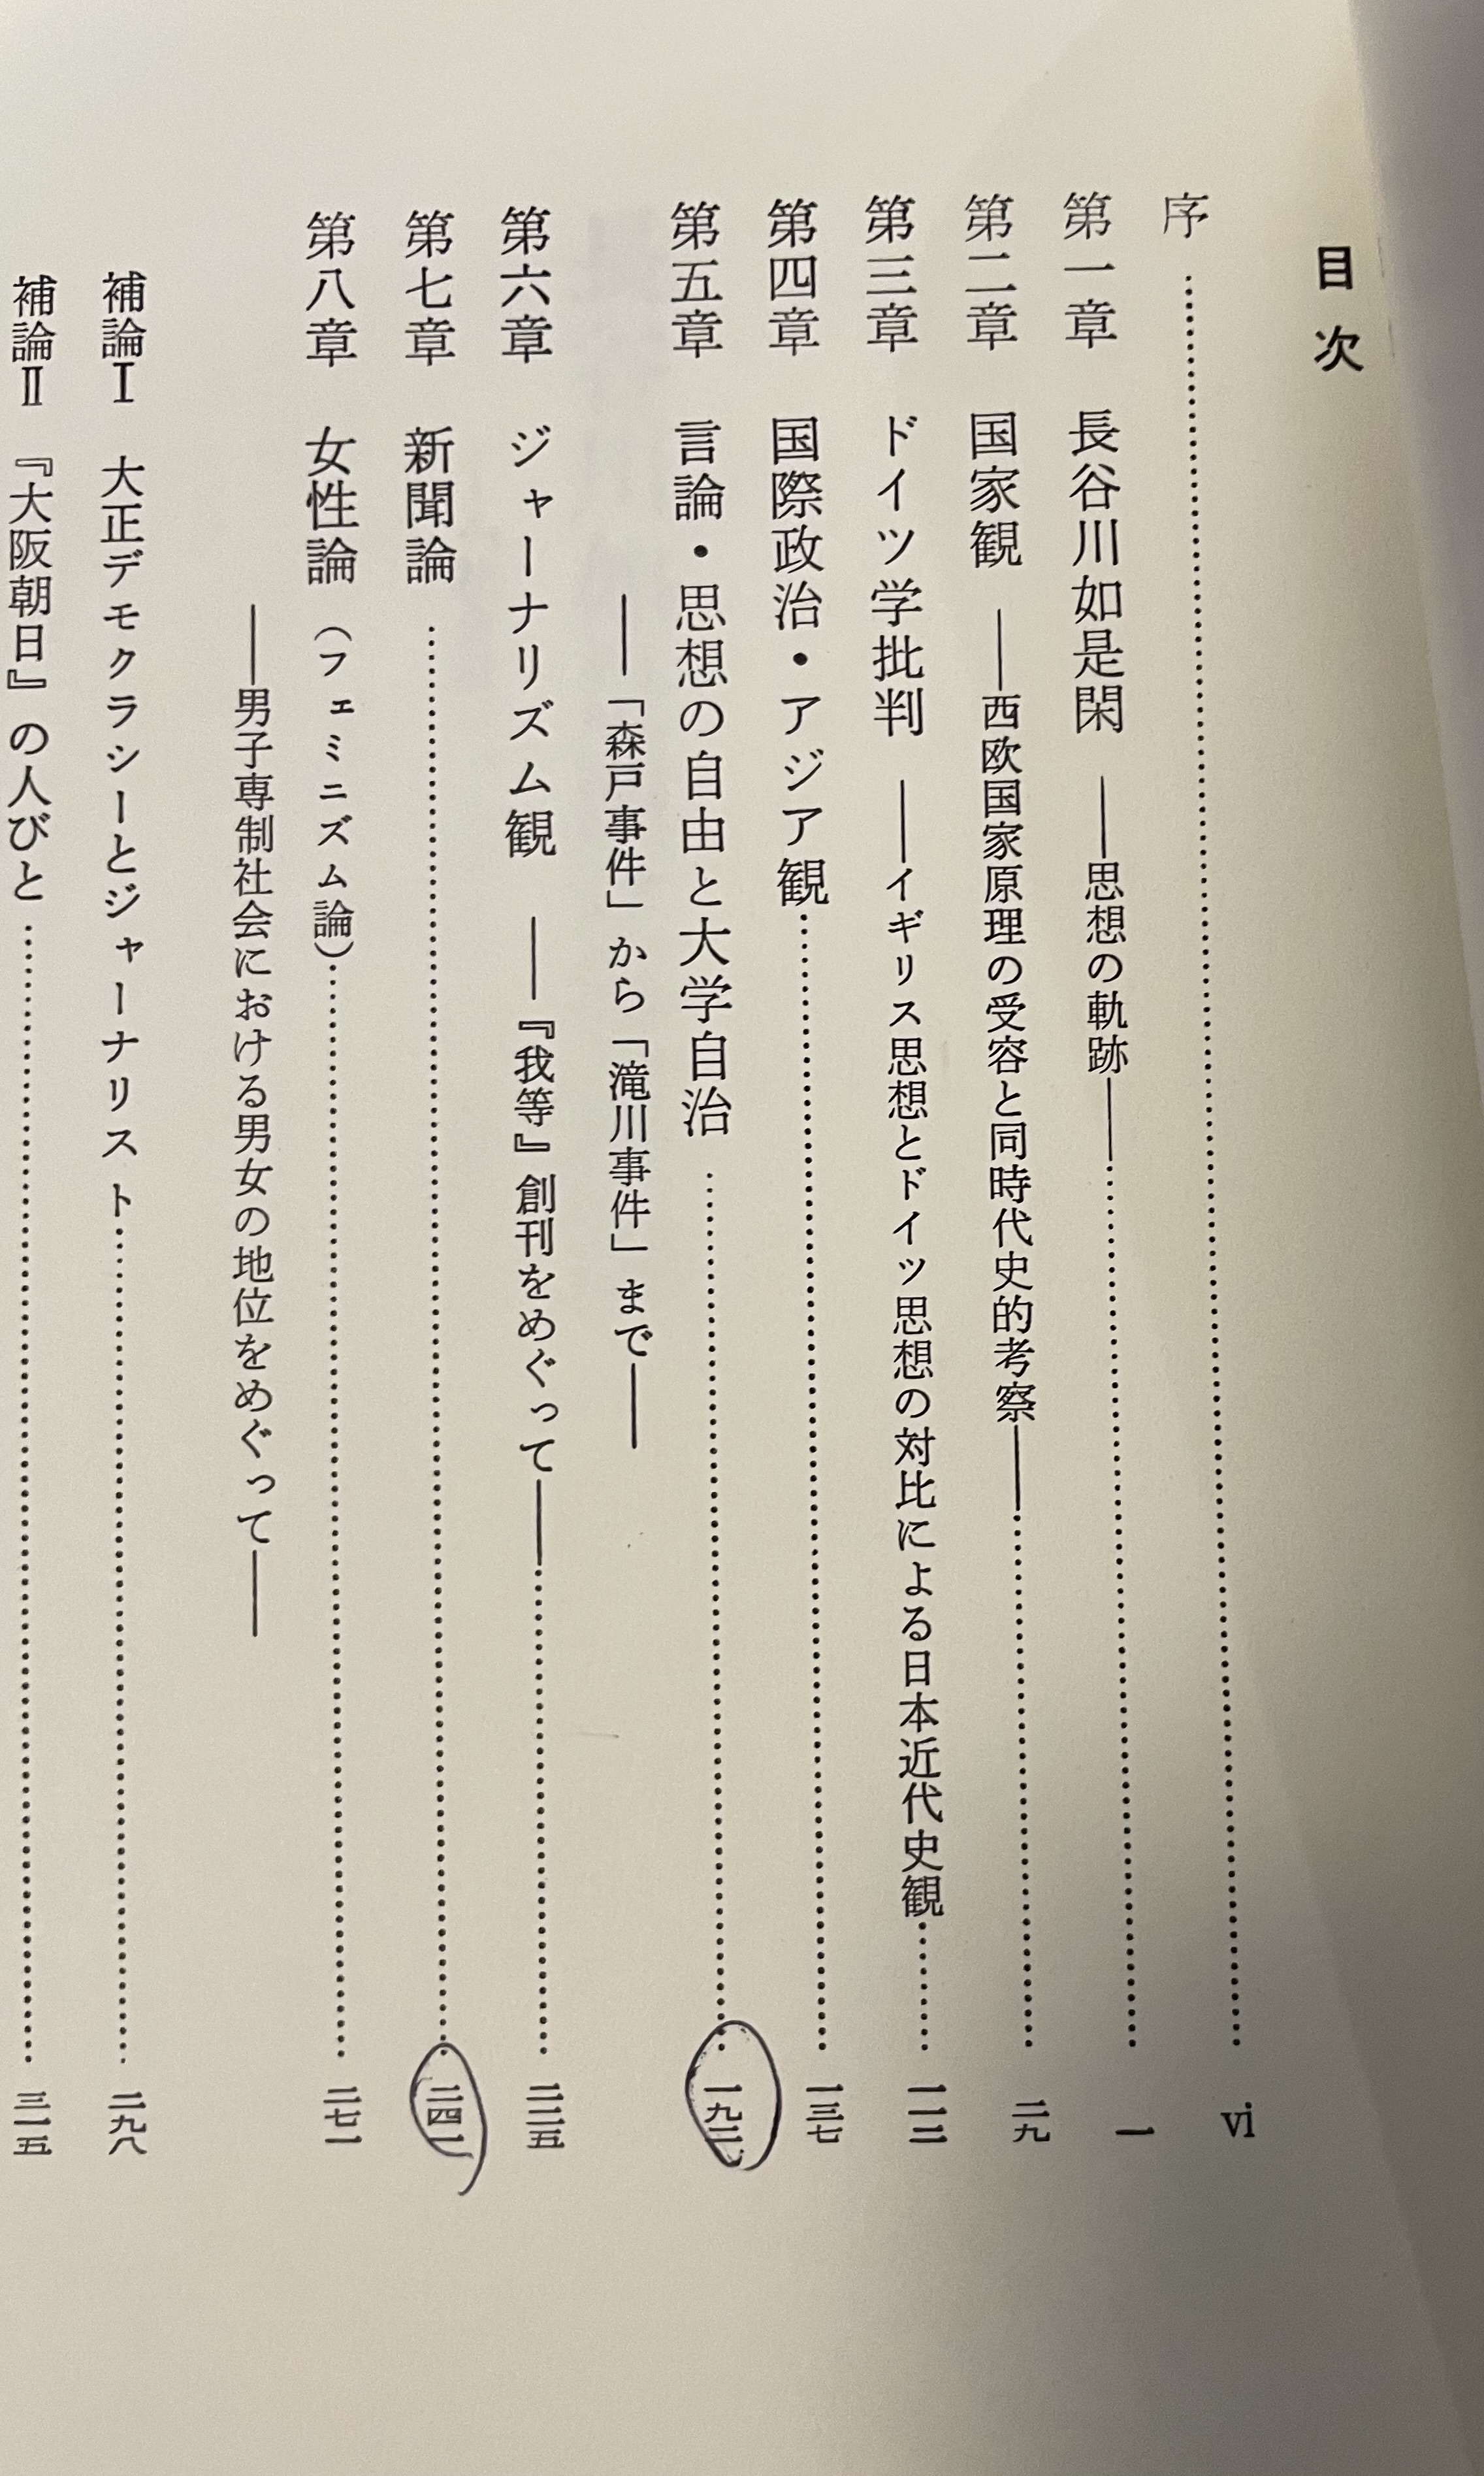 目次
序……vi
第一章 長谷川如是閑 ――思想の軌跡――……一
第二章 国家観 ――西欧国家原理の受容と同時代史的考察――……二九
第三章 ドイツ学批判 ――イギリス思想とドイツ思想の対比による日本近代史観……一一三
第四章 国際政治・アジア観……一三七
第五章 言論・思想の自由と大学自治……一九三
――「森戸事件」から「滝川事件」まで――
第六章 ジャーナリズム観 ――『我等』創刊をめぐって――……二二五
第七章 新聞論……二四一
第八章 女性論（フェミニズム論）……二七一
――男子専制社会における男女の地位をめぐって――
補論Ⅰ 大正デモクラシーとジャーナリスト……二九八
補論Ⅱ 『大阪朝日』の人びと……三一五